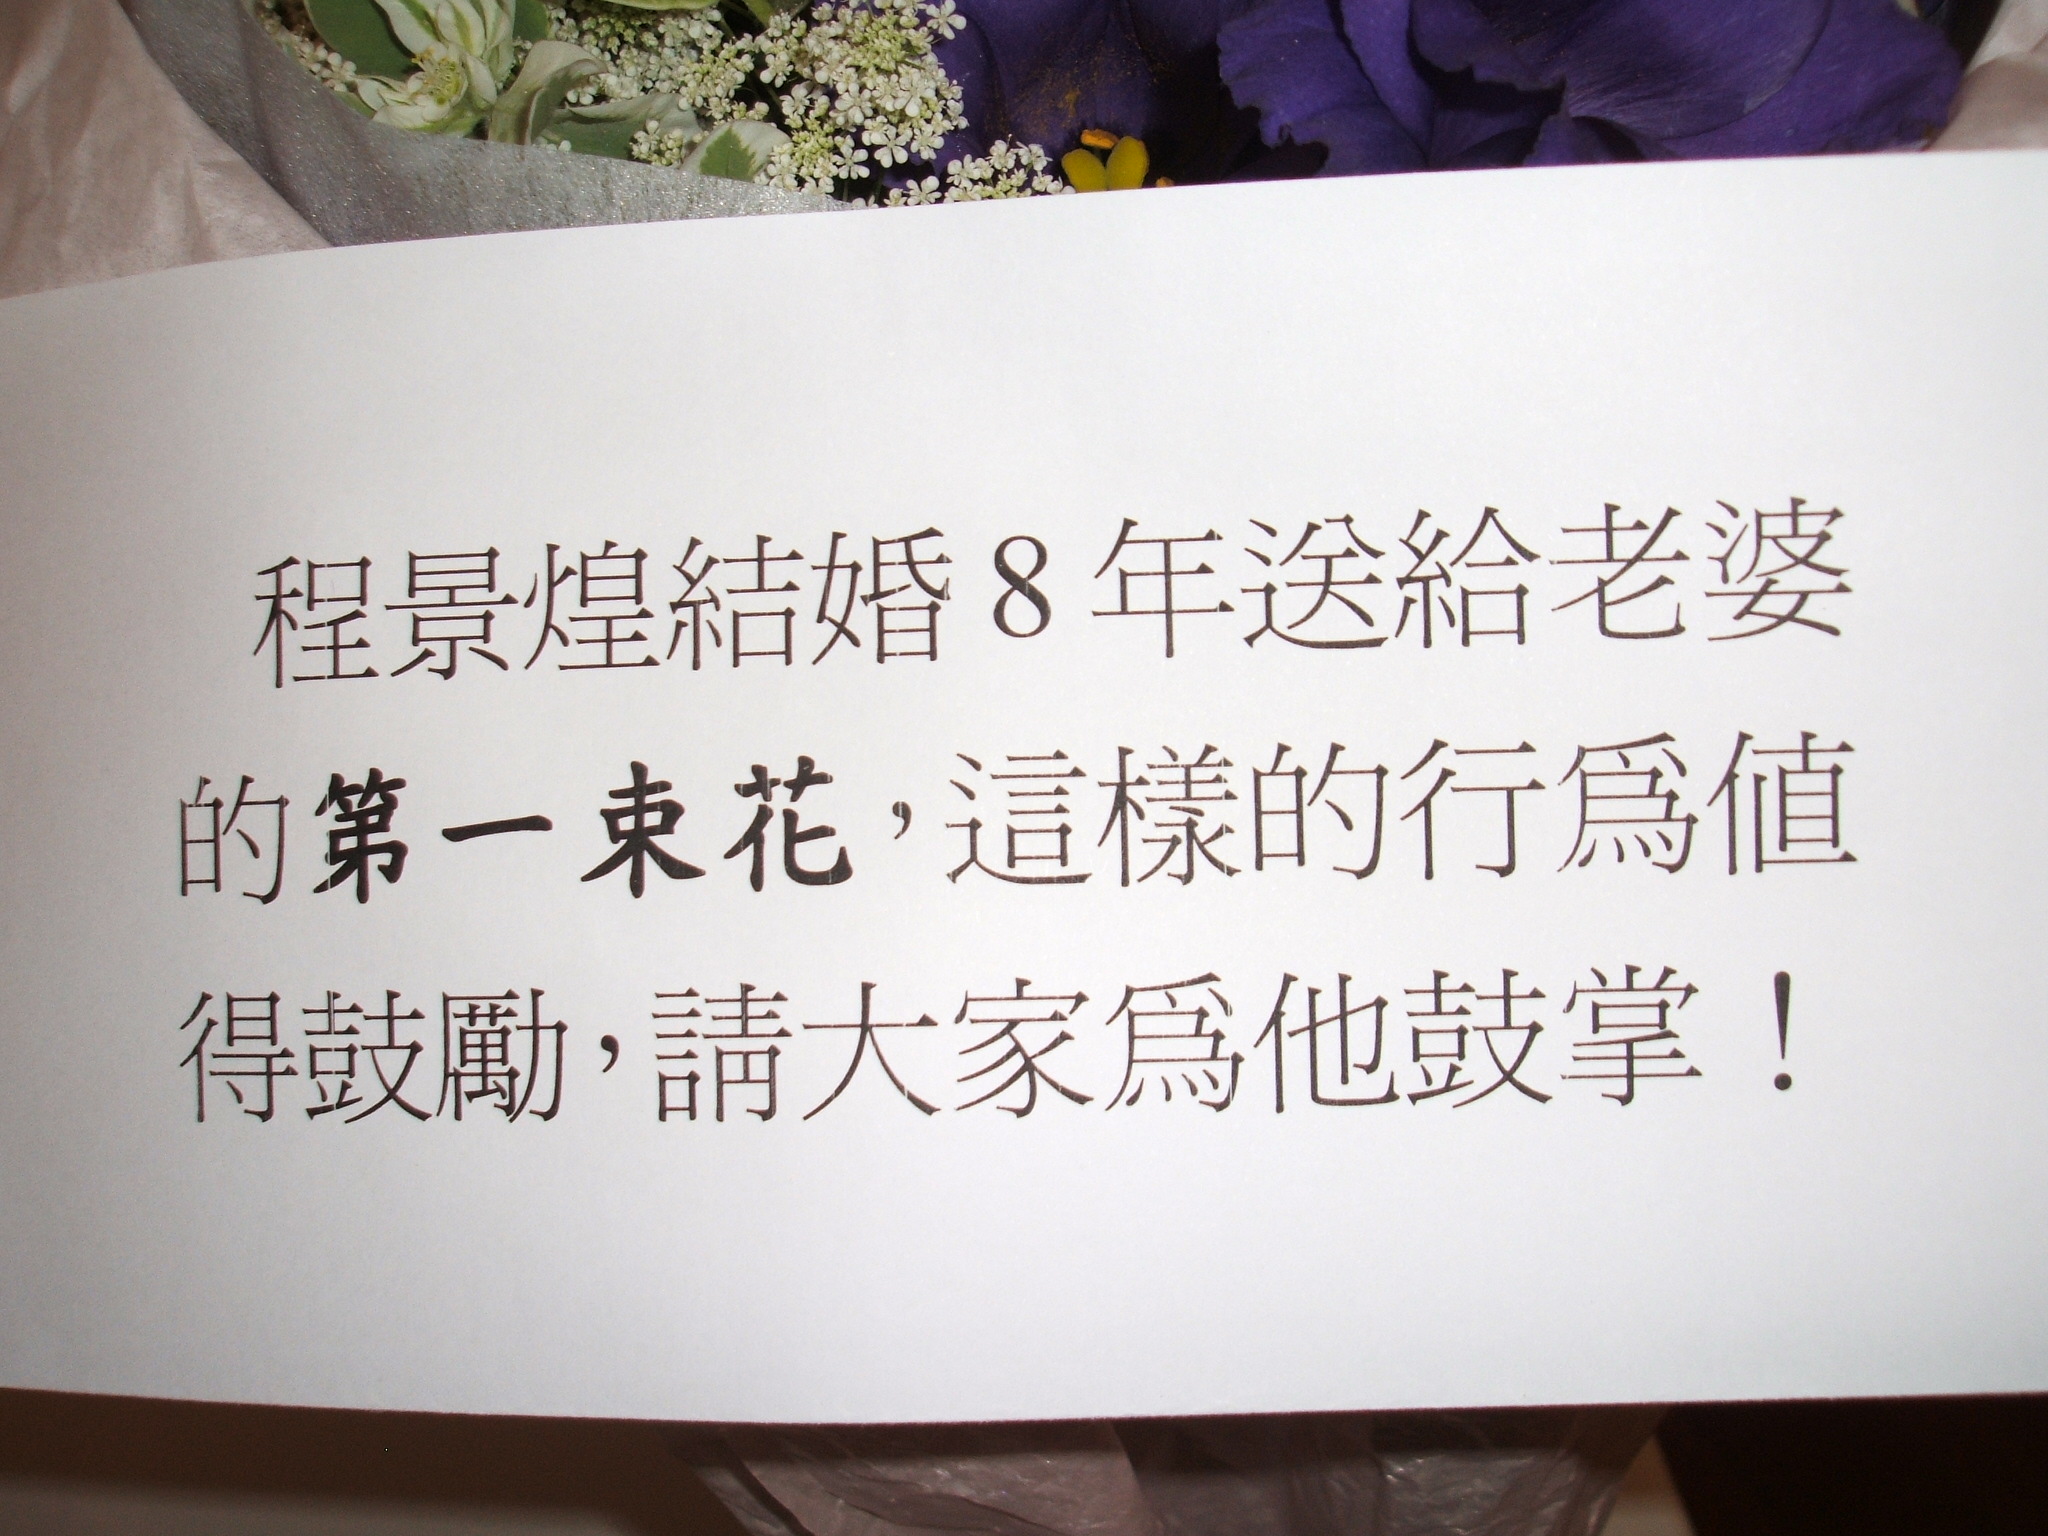 程景煌結婚 8 年送給老婆
的第一束花，這樣的行為值
得鼓勵，請大家為他鼓掌！